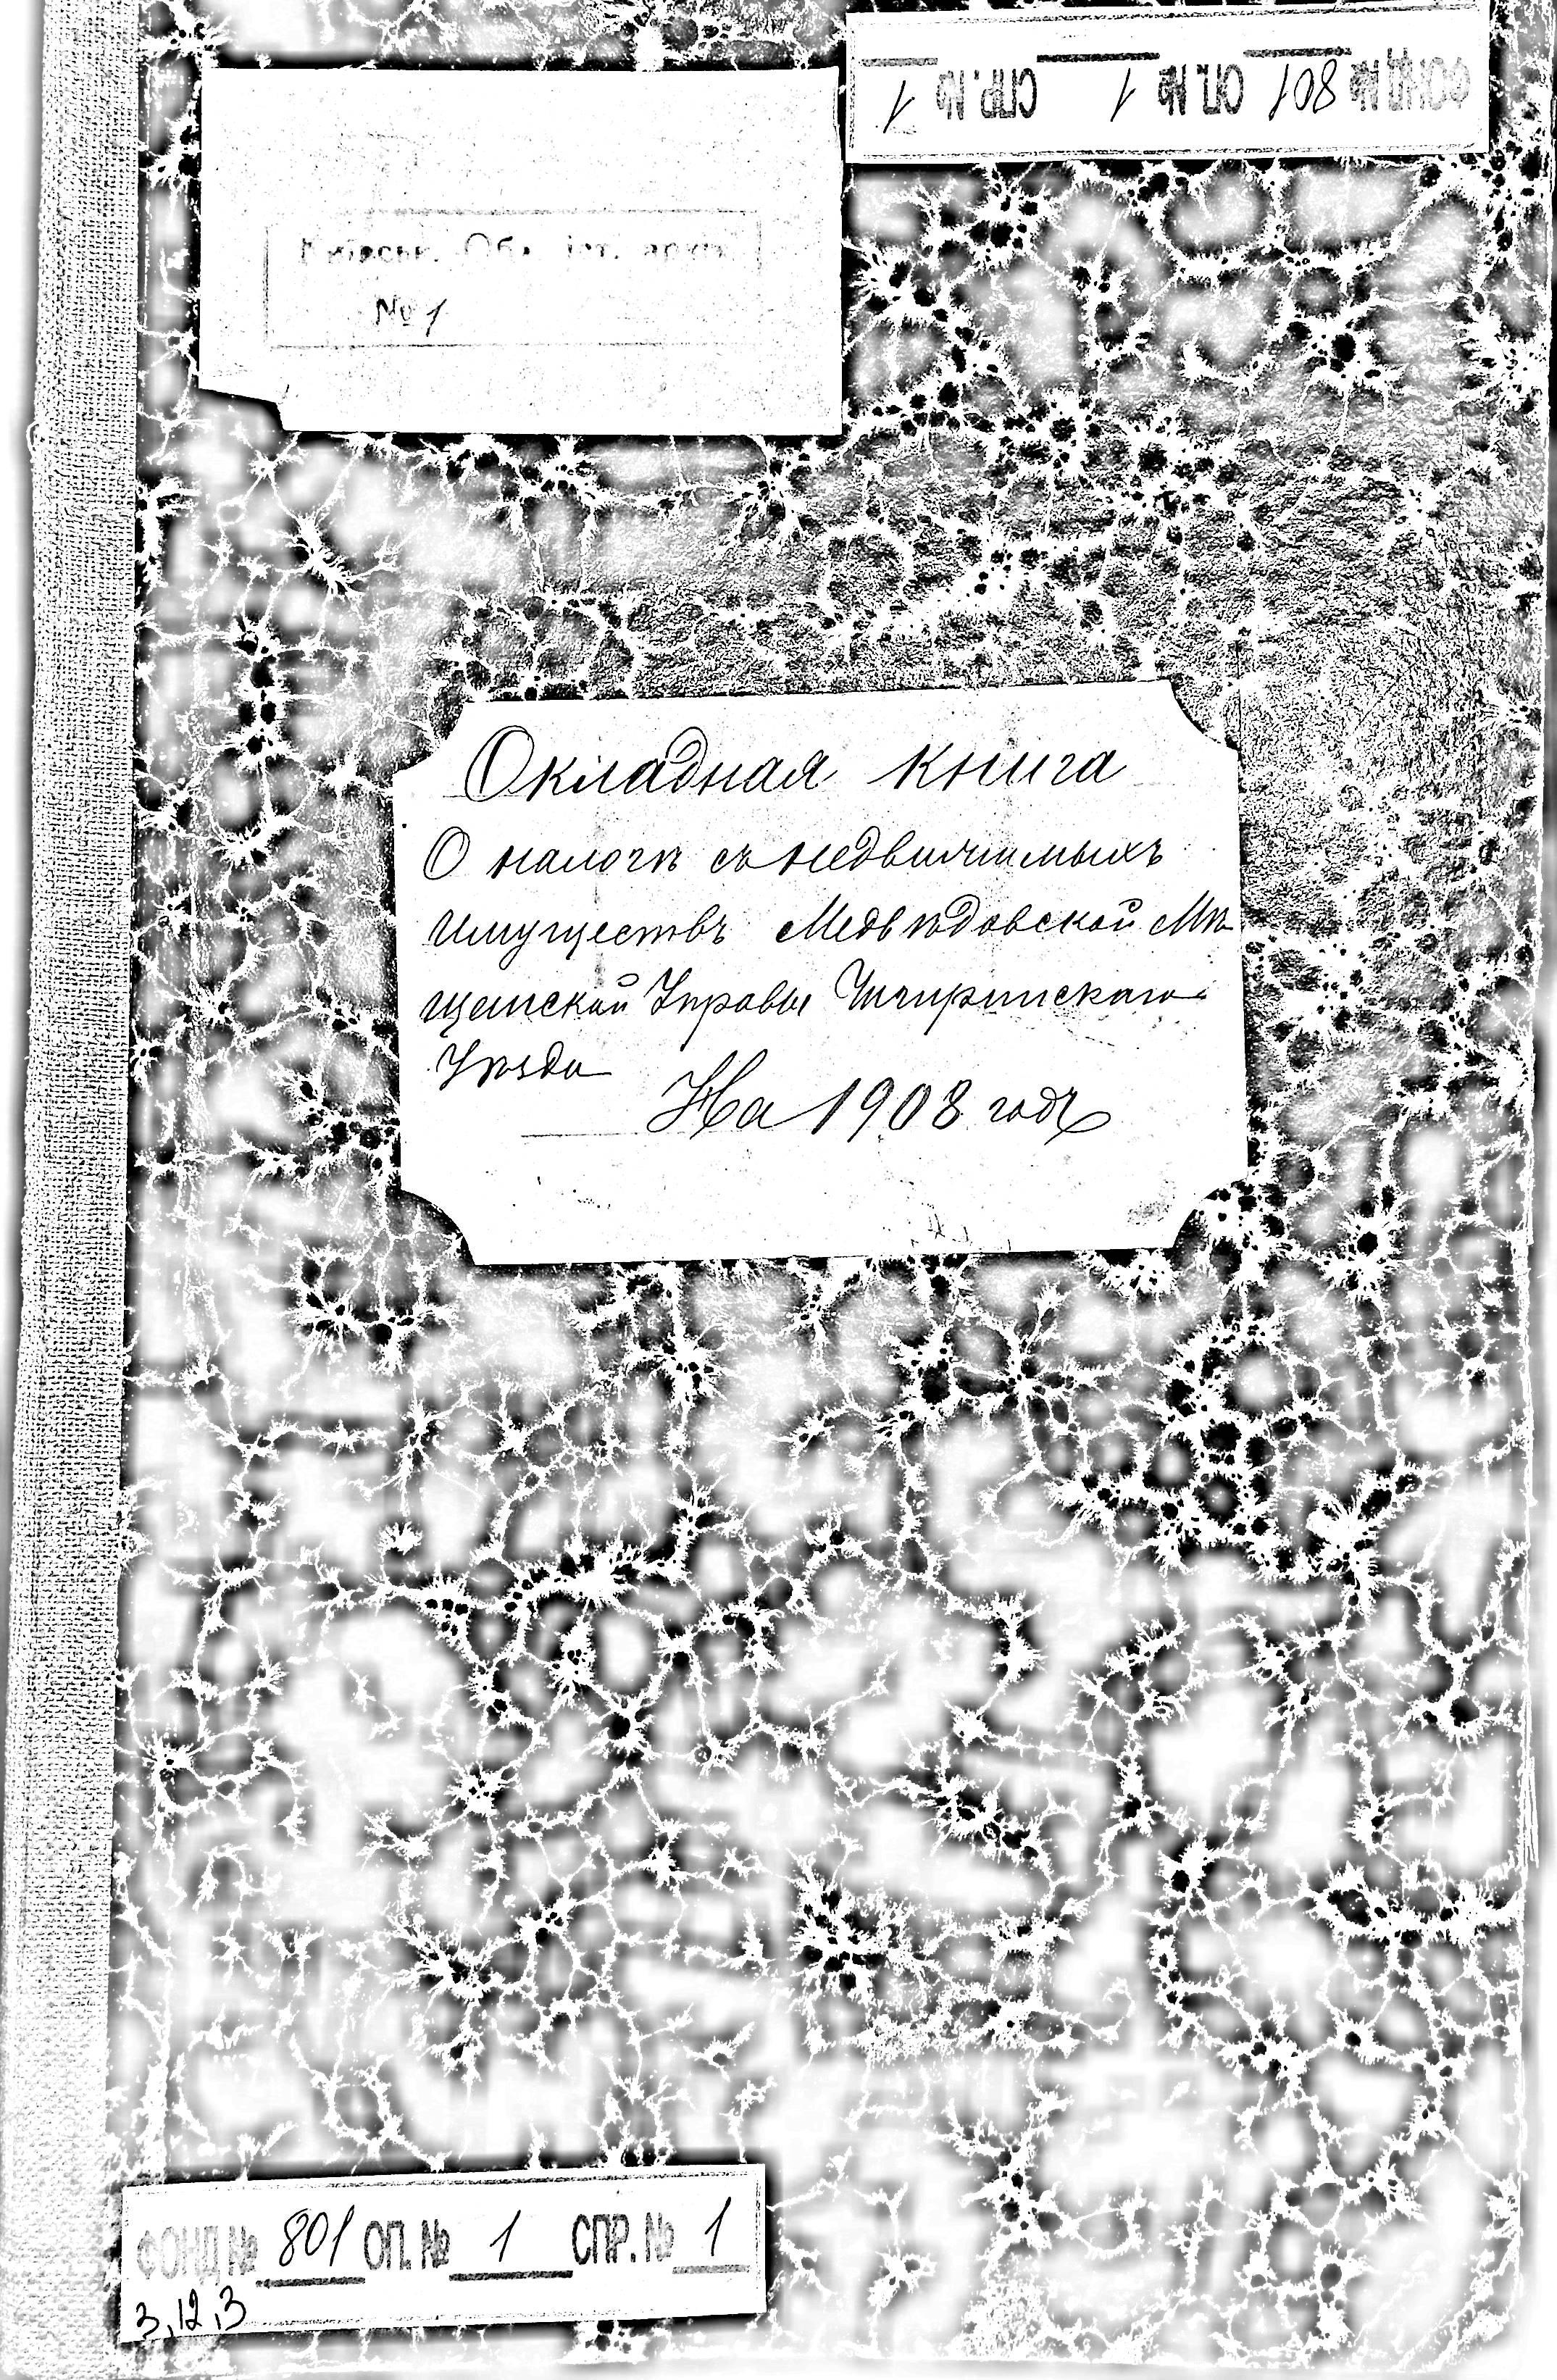 ФОНД № 801 ОП. № 1 СПР. № 1
№ 1
Окладная книга
О налогѣ съ недвижимыхъ
имуществъ Медвѣдовской Мѣ-
щанской Управы Чигиринскаго
Уѣзда
На 1908 годъ
ФОНД № 801 ОП. № 1 СПР. № 1
3,12,3